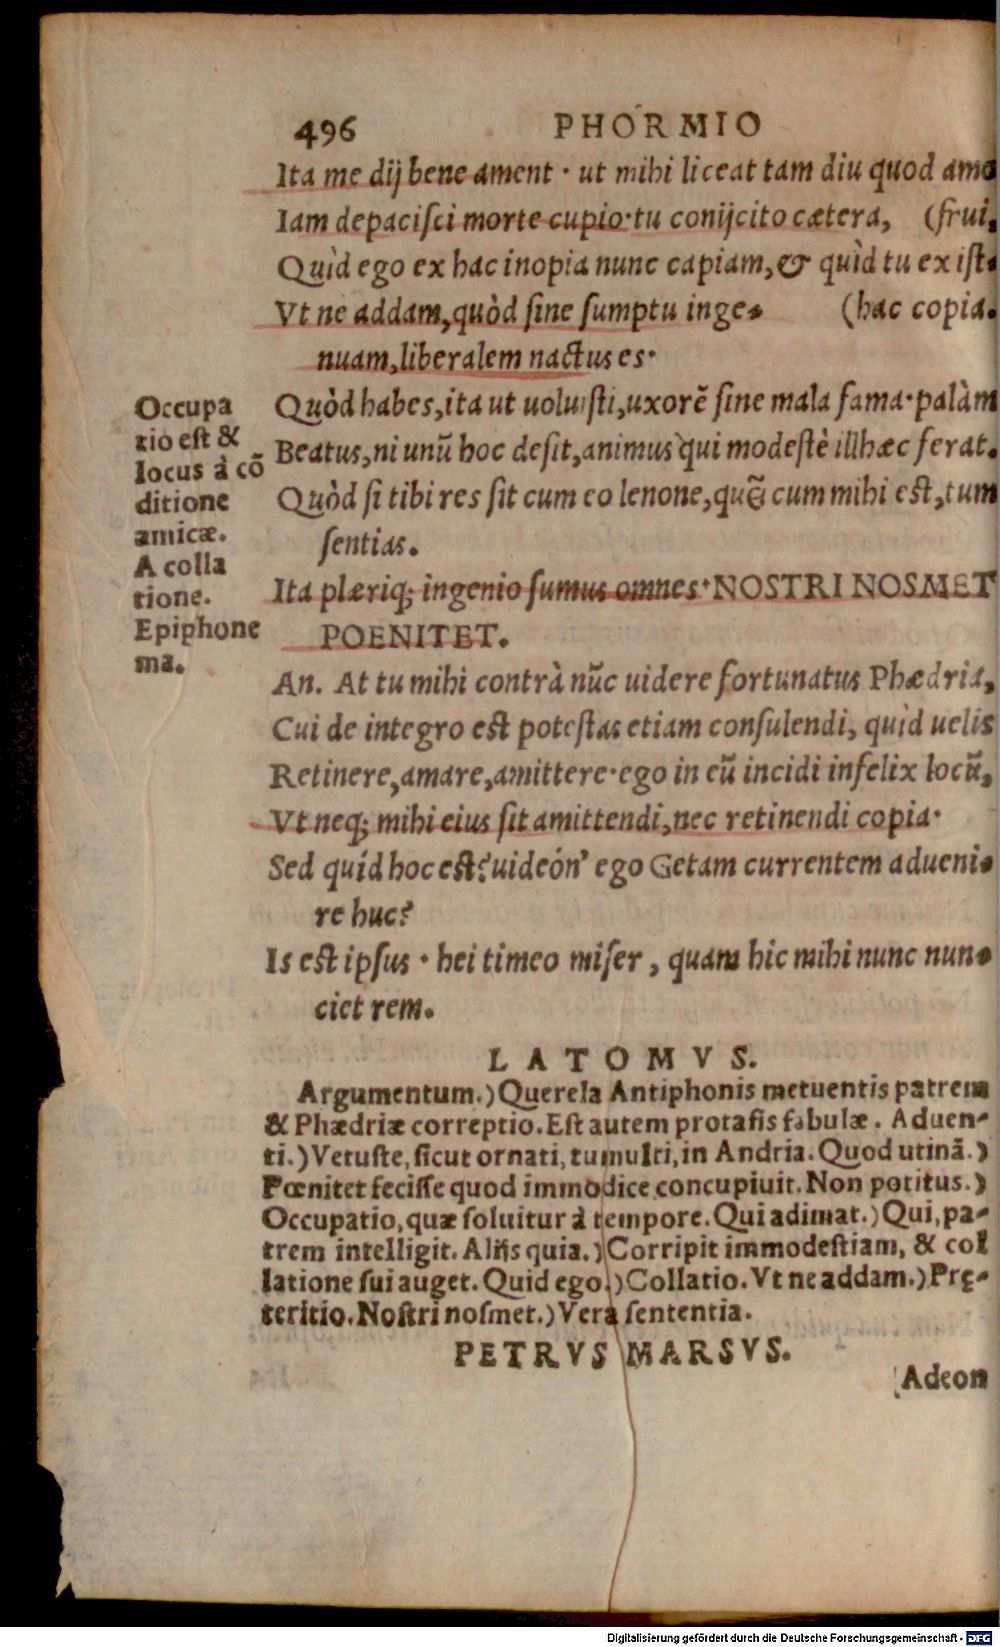 496 PHORMIO
Ita me dij bene ament · ut mihi liceat tam diu quod amo
Iam depacisci morte cupio·tu conijcito cætera, (frui,
Quìd ego ex hac inopia nunc capiam,& quìd tu ex ist-
Vt ne addam,quòd sine sumptu inge- (hac copia.
nuam,liberalem nactus es·
Quòd habes,ita ut uoluisti,uxorē sine mala fama·palàm
Beatus,ni unū hoc desit,animus qui modestè illhæc ferat.
Quòd si tibi res sit cum eo lenone,quō cum mihi est,tum
sentias.
Ita plæriq; ingenio sumus omnes·NOSTRI NOSMET
POENITET.
An. At tu mihi contrà nūc uidere fortunatus Phædria,
Cui de integro est potestas etiam consulendi, quìd uelis
Retinere,amare,amittere·ego in eū incidi infelix locū,
Vt neq; mihi eius sit amittendi,nec retinendi copia·
Sed quíd hoc est?uideón' ego Getam currentem adueni-
re huc?
Is est ipsus · hei timeo miser , quam hic mihi nunc nun-
ciet rem.
Occupa
tio est &
locus à cō
ditione
amicæ.
A colla
tione.
Epiphone
ma.
LATOMVS.
Argumentum.) Querela Antiphonis metuentis patrem
& Phædriæ correptio. Est autem protasis fabulæ. Aduen-
ti.) Vetuste, sicut ornati, tumulti, in Andria. Quod utinā.)
Pœnitet fecisse quod immodice concupiuit. Non potitus.)
Occupatio, quæ soluitur à tempore. Qui adimat.) Qui, pa-
trem intelligit. Alijs quia.) Corripit immodestiam, & col
latione sui auget. Quid ego.) Collatio. Vt ne addam.) Prę-
teritio. Nostri nosmet.) Vera sententia.
PETRVS MARSVS.
Adeon
Digitalisierung gefördert durch die Deutsche Forschungsgemeinschaft - DFG